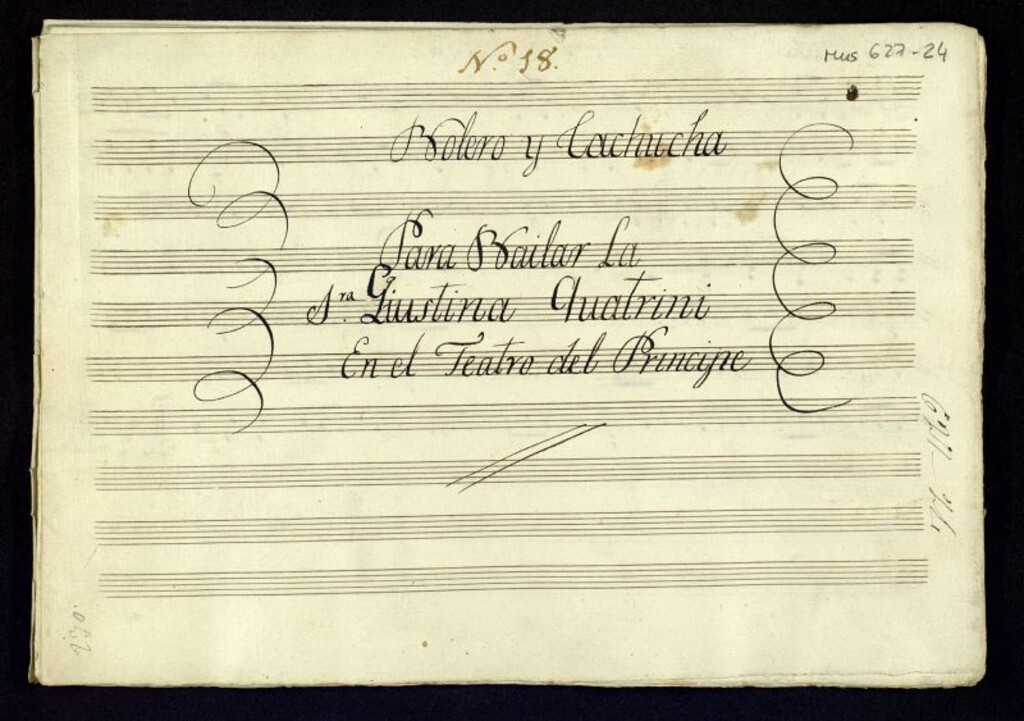 N.º 18.
Mus 627-24
Bolero y Cachucha
Para Bailar La
S.ra Giustina Quatrini
En el Teatro del Principe